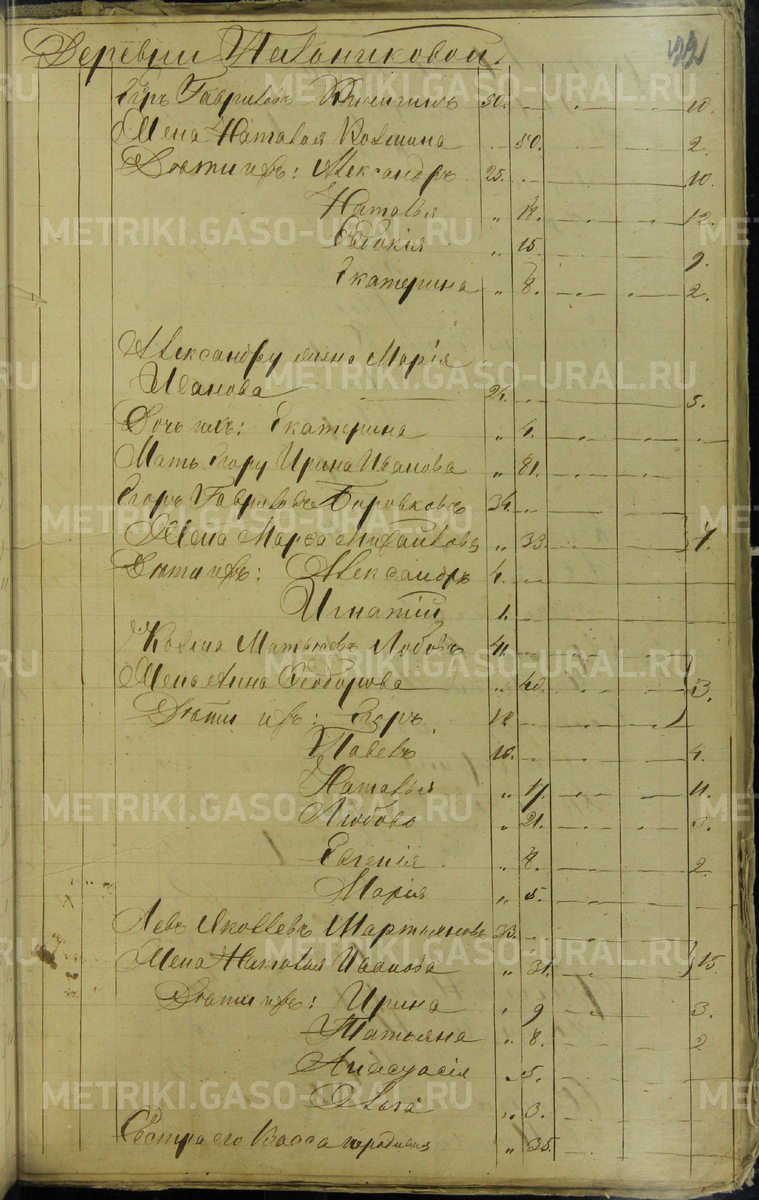 22
Деревни
Егоръ Гавриловъ 50. 10.
Жена Наталья Козмина 50. 2.
Дѣти ихъ: Александръ 25. 10.
Наталья „ 12.
Евдокія „ 15. 9.
Екатерина „ 8. 2.
Александру жена Марія
Иванова 24. 5.
Дочь ихъ: Екатерина „ 4.
Мать Егору Ирина Иванова „ 81.
Егоръ Гавриловъ Боровковъ 34.
Жена Марѳа Михайлова „ 33. 7.
Дѣти ихъ: Александръ 4.
Игнатій 1.
Козма Лобовъ 41.
Жена Анна Ѳеодорова „ 40. 3.
Дѣти ихъ: Егоръ 12
Павелъ 16. 4.
Наталья „ 11.
Любовь „ 21. 5.
Евгенія „ 8. 2
Марія „ 5.
Левъ Яковлевъ Мартьяновъ 33.
Жена Наталья Иванова „ 31. 15
Дѣти ихъ: Ирина „ 9 3.
Татьяна „ 8. 2
Анастасія „ 5.
Ольга „ 3.
Сестра его Васса „ 35.
METRIKI.GASO-URAL.RU